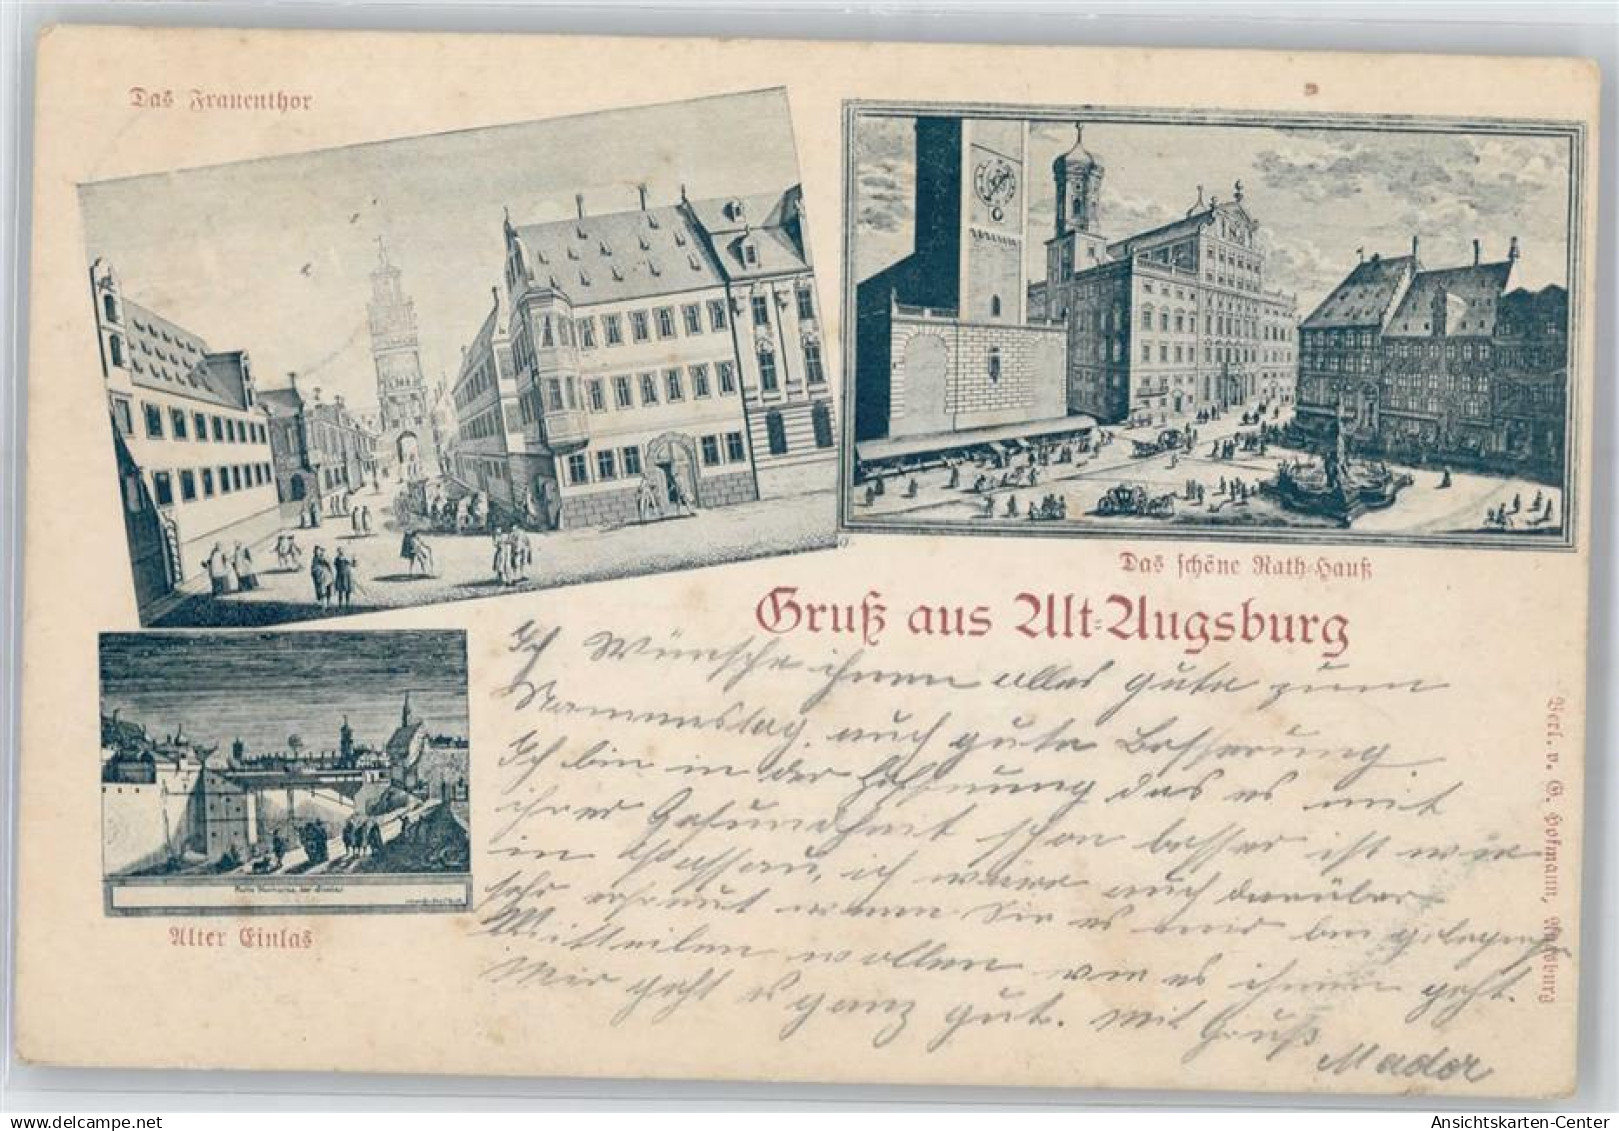 Das Frauenthor
Das schöne Rath-Hauß
Gruß aus Alt-Augsburg
Ich Wünsche ihnen alles gute zum
Nammenstag, auch gute Besserung
Ich bin in der Hoffnung das es mit
ihrer Gesundheit schon besser ist wie
in Passau, ich wäre auch darüber
sehr erfreut wenn Sie es mir bei gelegenh
Mitteilen wollen wie es ihnen geht.
Mir geht es ganz gut. Mit Gruß
Mader
Alter Einlas
Verl. v. G. Hofmann, Augsburg
Ansichtskarten-Center